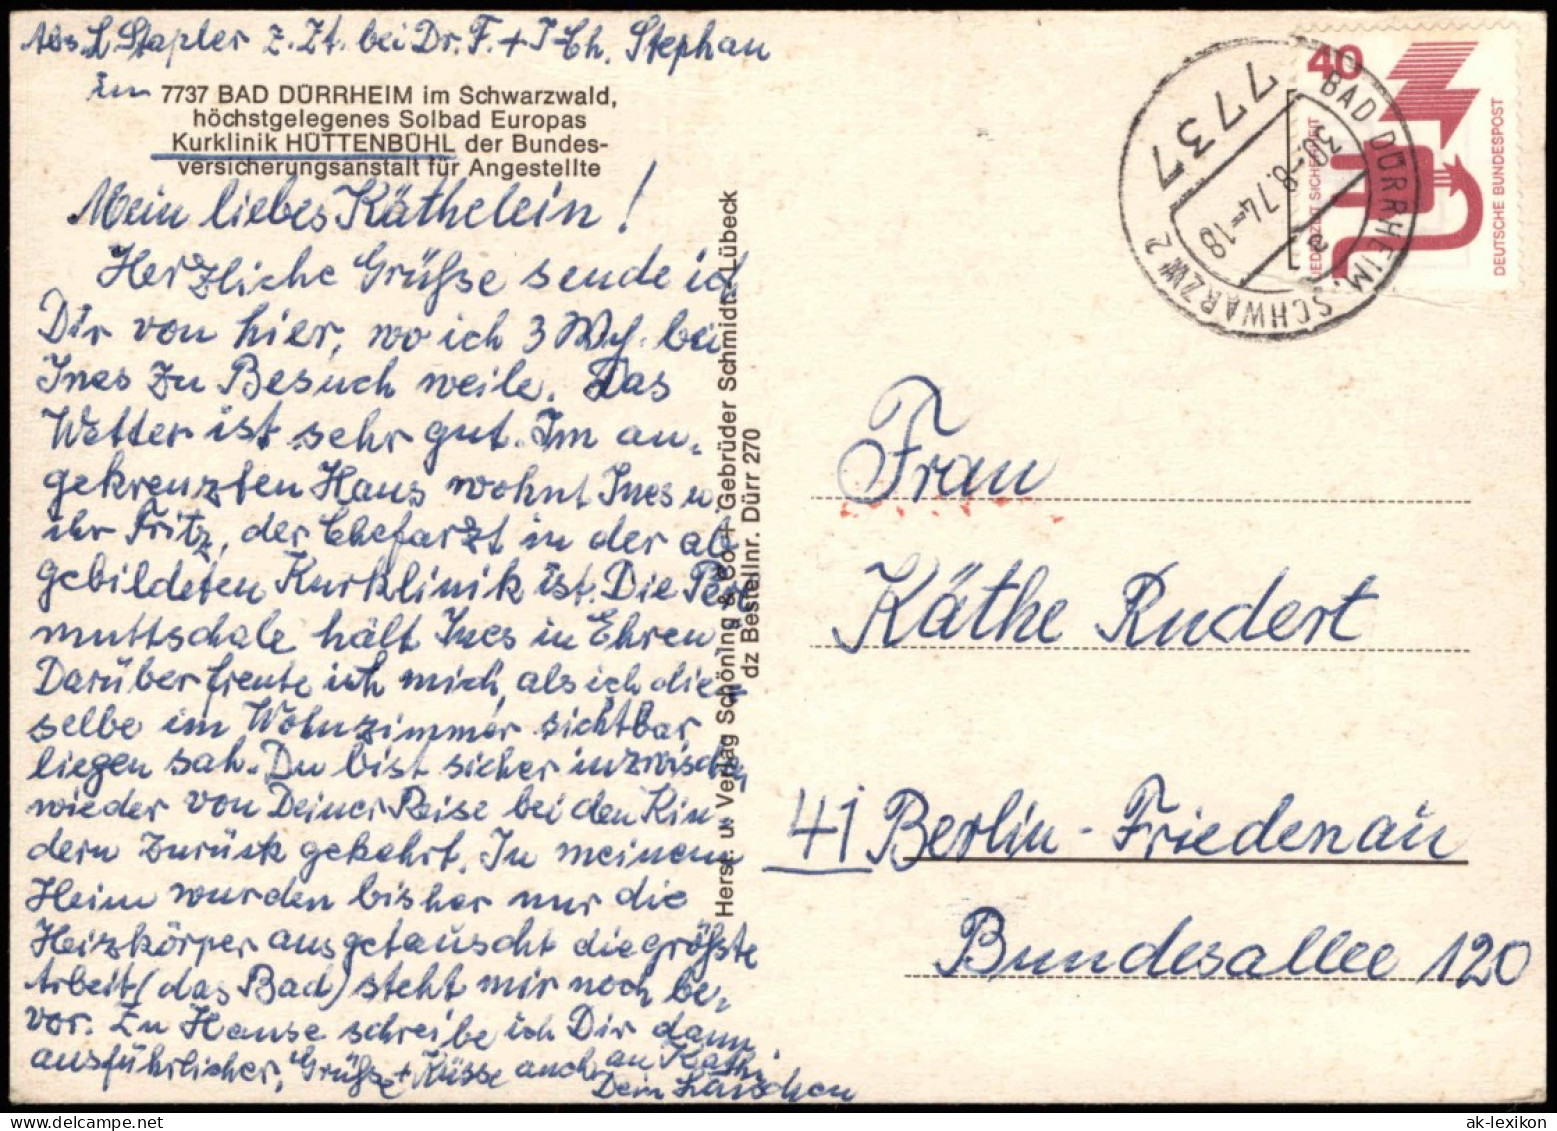 Abs. L. Stapler z. Zt. bei Dr. F. + I-Ch. Stephan
im 7737 BAD DÜRRHEIM im Schwarzwald,
höchstgelegenes Solbad Europas
Kurklinik HÜTTENBÜHL der Bundes-
versicherungsanstalt für Angestellte
Mein liebes Käthelein!
Herzliche Grüße sende ich
Dir von hier, wo ich 3 Wch. bei
Ines zu Besuch weile. Das
Wetter ist sehr gut. Im an-
gekreuzten Haus wohnt Ines u.
ihr Fritz, der Chefarzt in der ab
gebildeten Kurklinik ist. Die Perl
muttschale hält Ines in Ehren,
Darüber freute ich mich, als ich die=
selbe im Wohnzimmer sichtbar
liegen sah. Du bist sicher inzwisch.
wieder von Deiner Reise bei den Kin
dern zurück gekehrt. In meinem
Heim wurden bisher nur die
Heizkörper ausgetauscht die größte
Arbeit (das Bad) steht mir noch be-
vor. Zu Hause schreibe ich Dir dann
ausführlicher. Grüße + Küsse auch an Kathi
Dein
Herst. u. Verlag Schöning & Co + Gebrüder Schmidt, Lübeck
dz Bestellnr. Dürr 270
40
JEDERZEIT SICHERHEIT
DEUTSCHE BUNDESPOST
7737 BAD DÜRRHEIM, SCHWARZW 2
30.-8.74-18
a
Frau
Käthe Rudert
41 Berlin-Friedenau
Bundesallee 120
www.delcampe.net
ak-lexikon